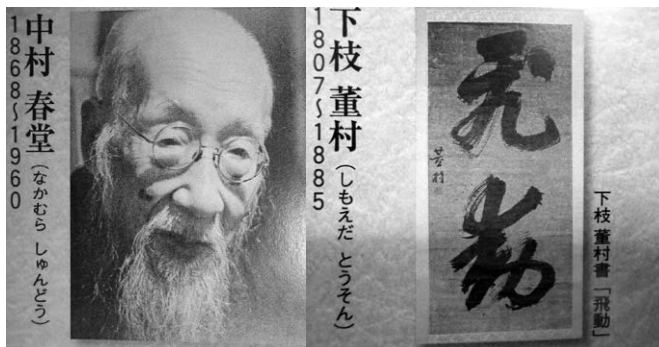 中村 春堂(なかむら しゅんどう)
1868~1960
下枝 董村(しもえだ とうそん)
1807~1885
飛動
董村
下枝 董村書「飛動」